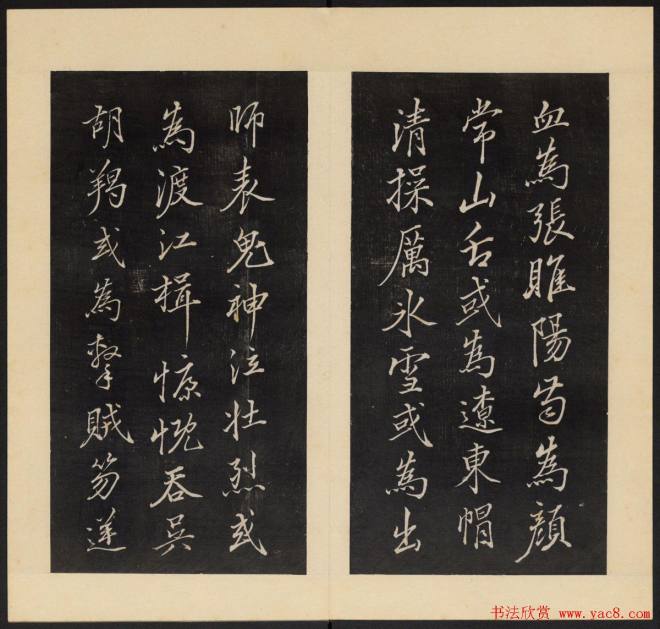 血為張睢陽齒為顏
常山舌或為遼東帽
清操厲冰雪或為出
師表鬼神泣壯烈或
為渡江楫慷慨吞吳
胡羯或為擊賊笏逆
书法欣赏 www.yac8.com